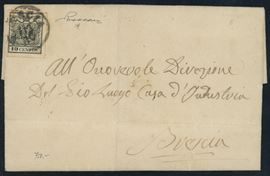 10 CENTES
All' Onorevole Direzione
Del Pio Luogo Casa d'Industria
Brescia